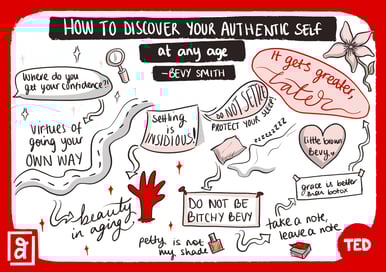 HOW TO DISCOVER YOUR AUTHENTIC SELF
at any age
-BEVY SMITH
Where do you
get your confidence?!
It gets greater,
Later
DO NOT SETTLE
PROTECT YOUR SLEEP!
zzzzzzzzz
Settling
is
INSIDIOUS!
VIRTUES OF
going your
OWN WAY
little brown
Bevy
grace is better
than botox
beauty
in aging!
DO NOT BE
BITCHY BEVY
take a note,
leave a note
petty is not
my shade
a
TED